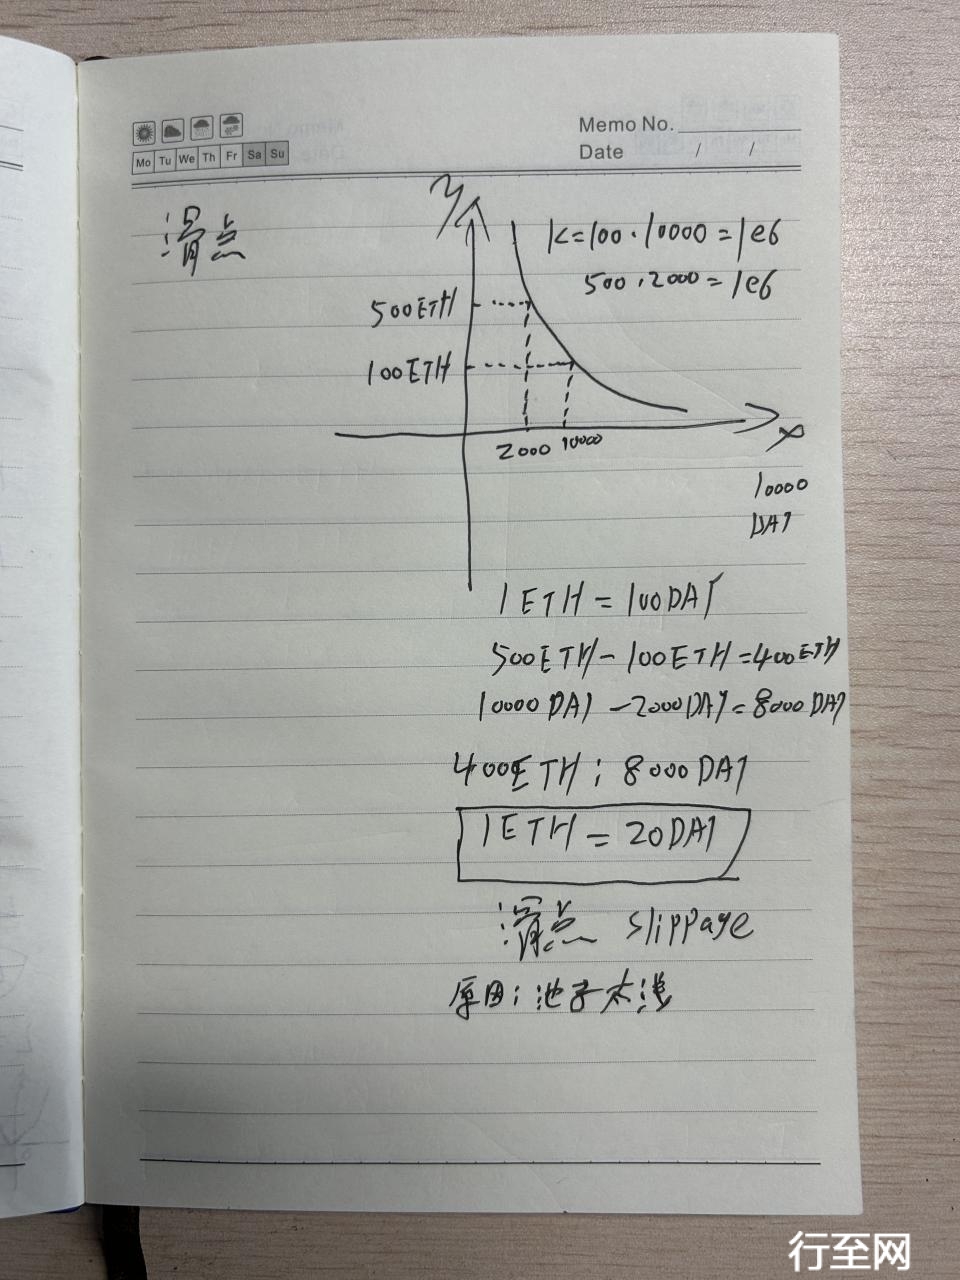 Memo No.
Mo Tu We Th Fr Sa Su
Date / /
滑点
y
K=100·10000=1e6
500·2000=1e6
500ETH
100ETH
2000 10000
x
10000
DAI
1ETH=100DAI
500ETH-100ETH=400ETH
10000DAI-2000DAI=8000DAI
400ETH:8000DAI
1ETH=20DAI
滑点 slippage
原因:池子太浅
行至网